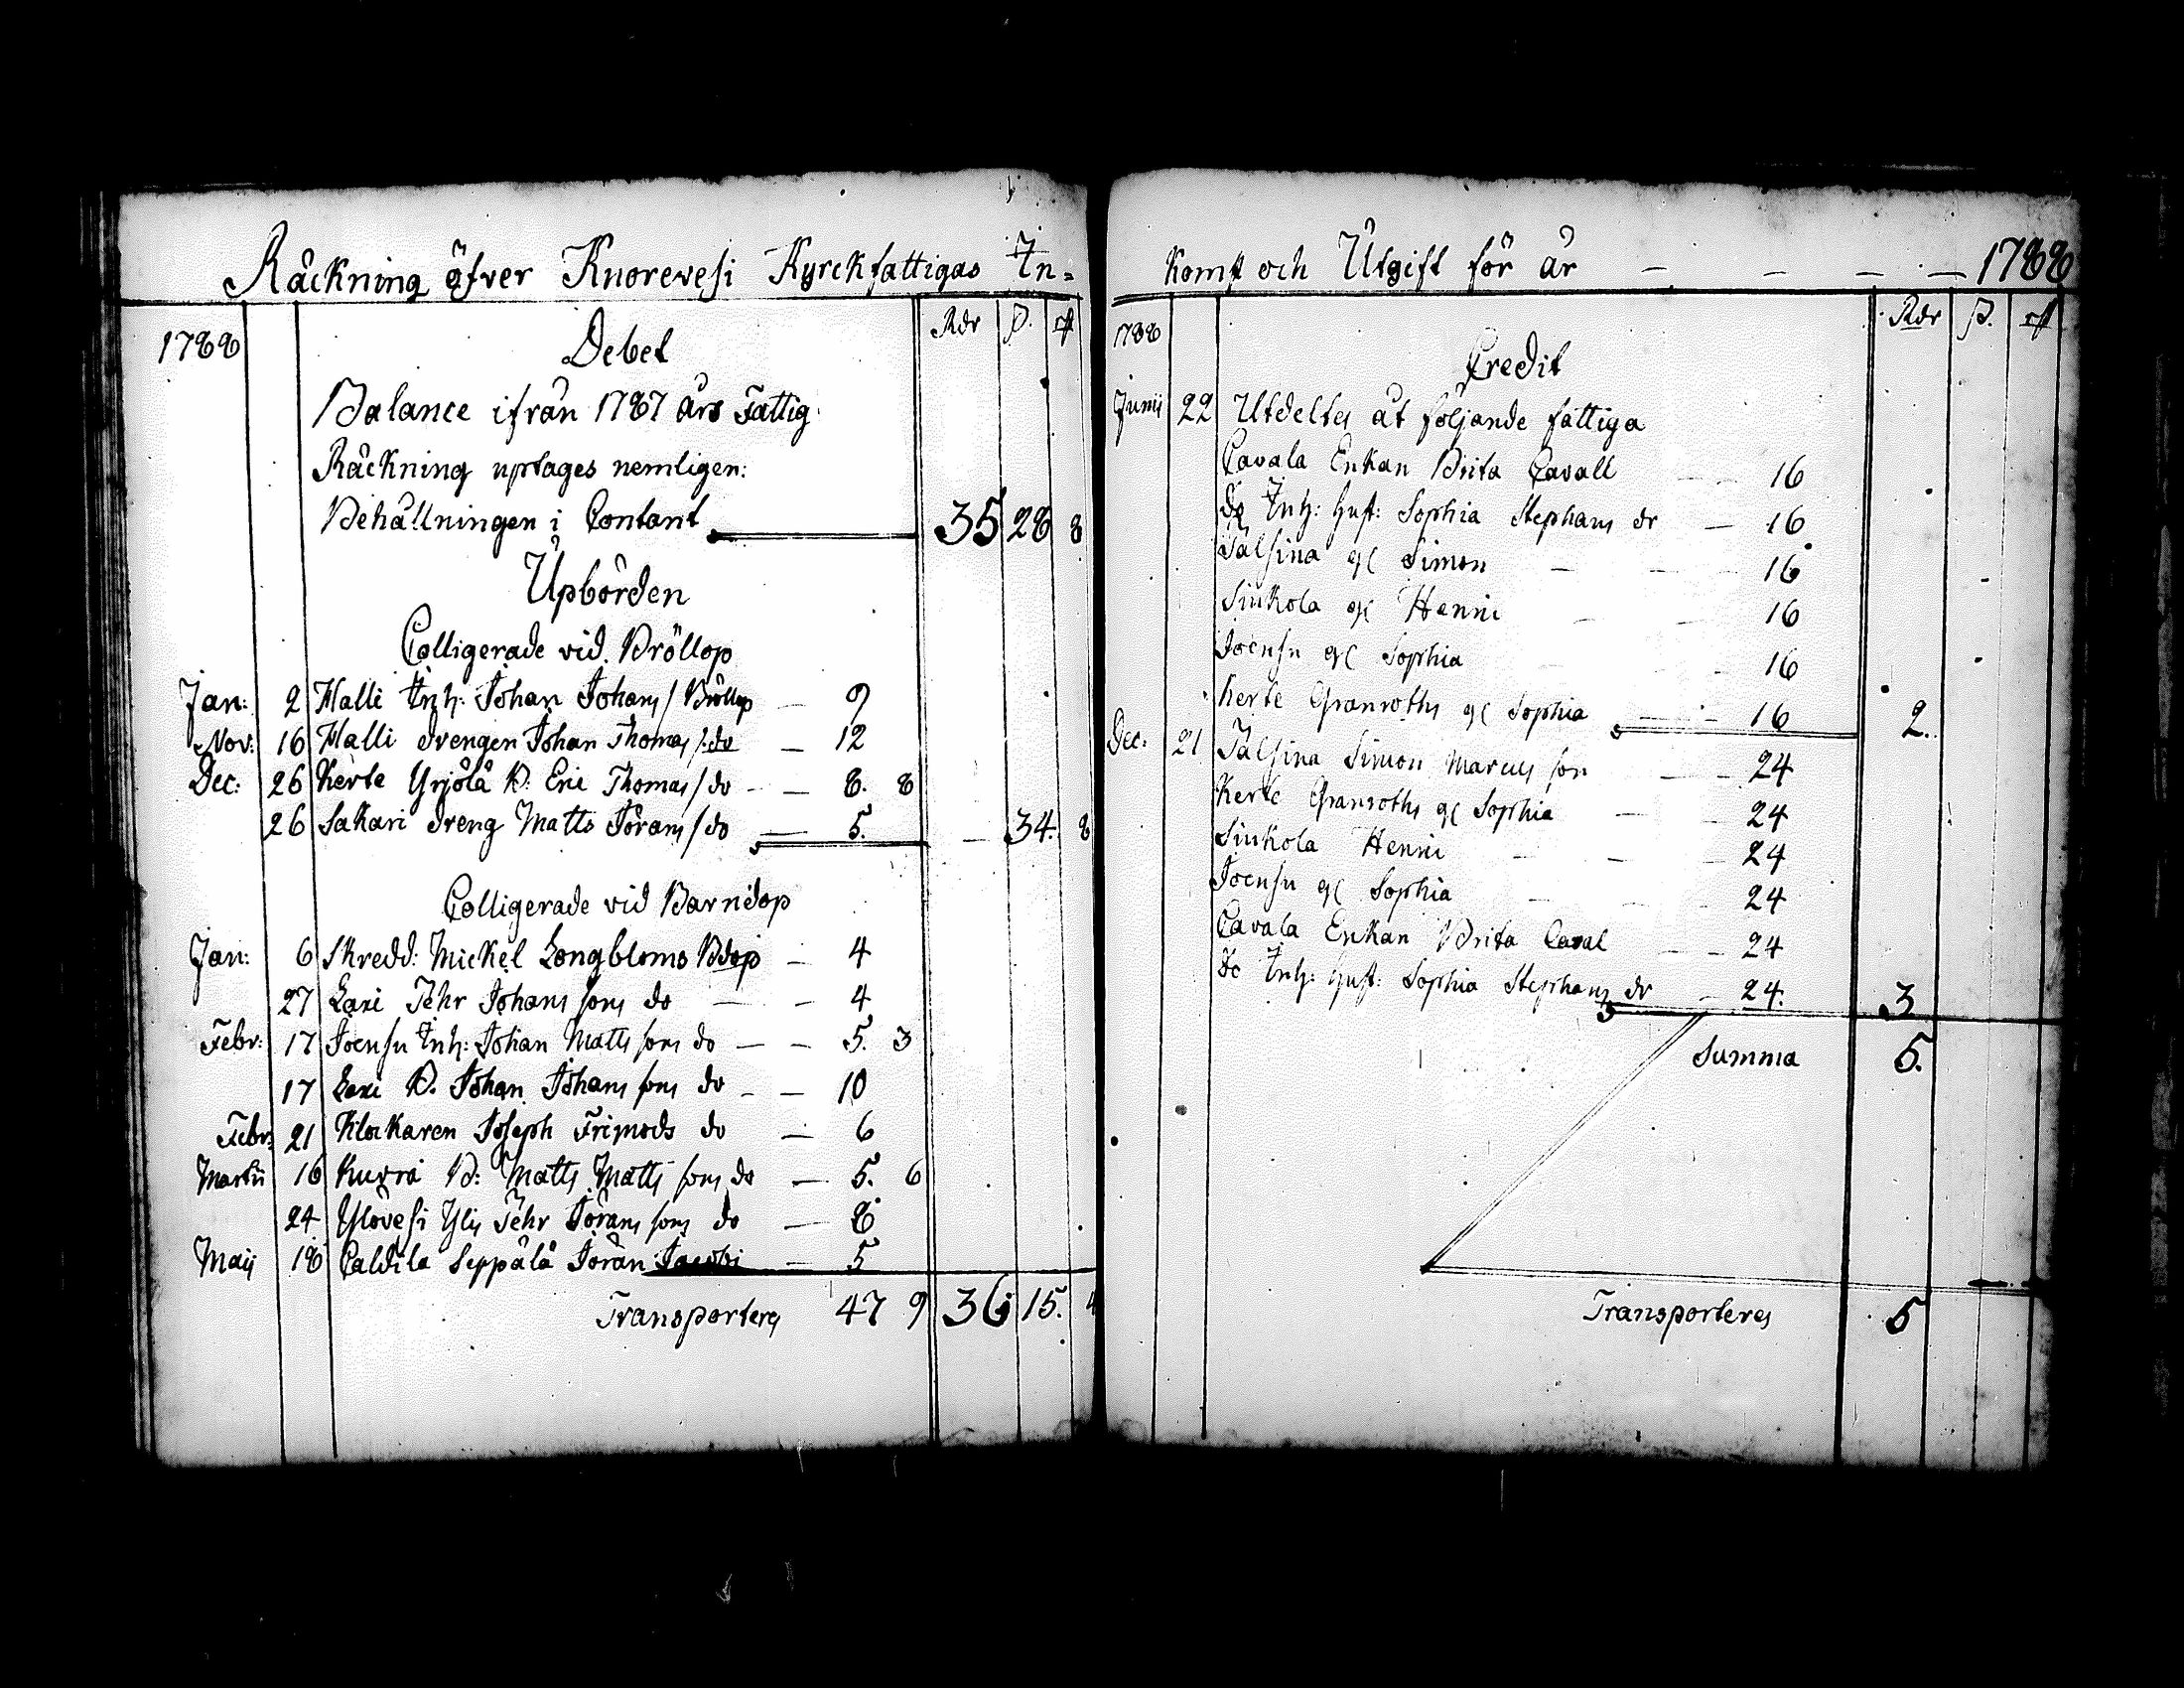 Räckning öfver Knorevesi Kyrckfattigas In=
Rdr ß. rf
1788
Debet
Balance ifrån 1787 års Fattig
Räckning uptages nemligen:
Behållningen i Contant 35 28 8
Upbörden
Colligerade vid Bröllop
Jan: 2 Halli Inh: Johan Johans/ Bröllop — 9
Nov: 16 Halli drengen Johan Thomas/ do — 12
Dec: 26 Kerte Yrjölä B: Eric Thomas/ do — 8. 8
26 Sakari dreng Matts Jörans/ do — 5. — 34. 8
Colligerade vid Barndop
Jan: 6 Skredd: Mickel Longbloms Bdop — 4
27 Laxi Jehr Johans sons do — 4
Febr: 17 Joensu Inh: Johan Matts sons do — 5. 3
17 Laxi B. Johan Johans sons do — 10
Febr: 21 Klockaren Joseph Frimods do — 6
Martii 16 Kuvra B: Matts Matts sons do — 5. 6
24 Ylövesi Ylis Jehr Jörans sons do — 8
Maij 18 Caldila Seppälä Jöran Jacobi — 5
Transporteres 47 9 36 15. 4
komst och Utgift för år — — — — 1788
Rdr ß. rf
1788
Credit
Junii 22 Utdeltes åt följande fattiga
Cavala Enkan Brita Cavall — 16
do Inh: Hust: Sophia Stephans dr — 16
Jalsina gl Simon — 16
Sinkola gl Henric — 16
Joensu gl Sophia — 16
Kerte Granroths gl Sophia — 16 2.
Dec: 21 Jalsina Simon Marcus son — 24
Kerte Granroths gl Sophia — 24
Sinkola Henric — 24
Joensu gl Sophia — 24
Cavala Enkan Brita Caval — 24
do Inh: Hust: Sophia Stephans dr — 24. 3
Summa 5.
Transporteres 5